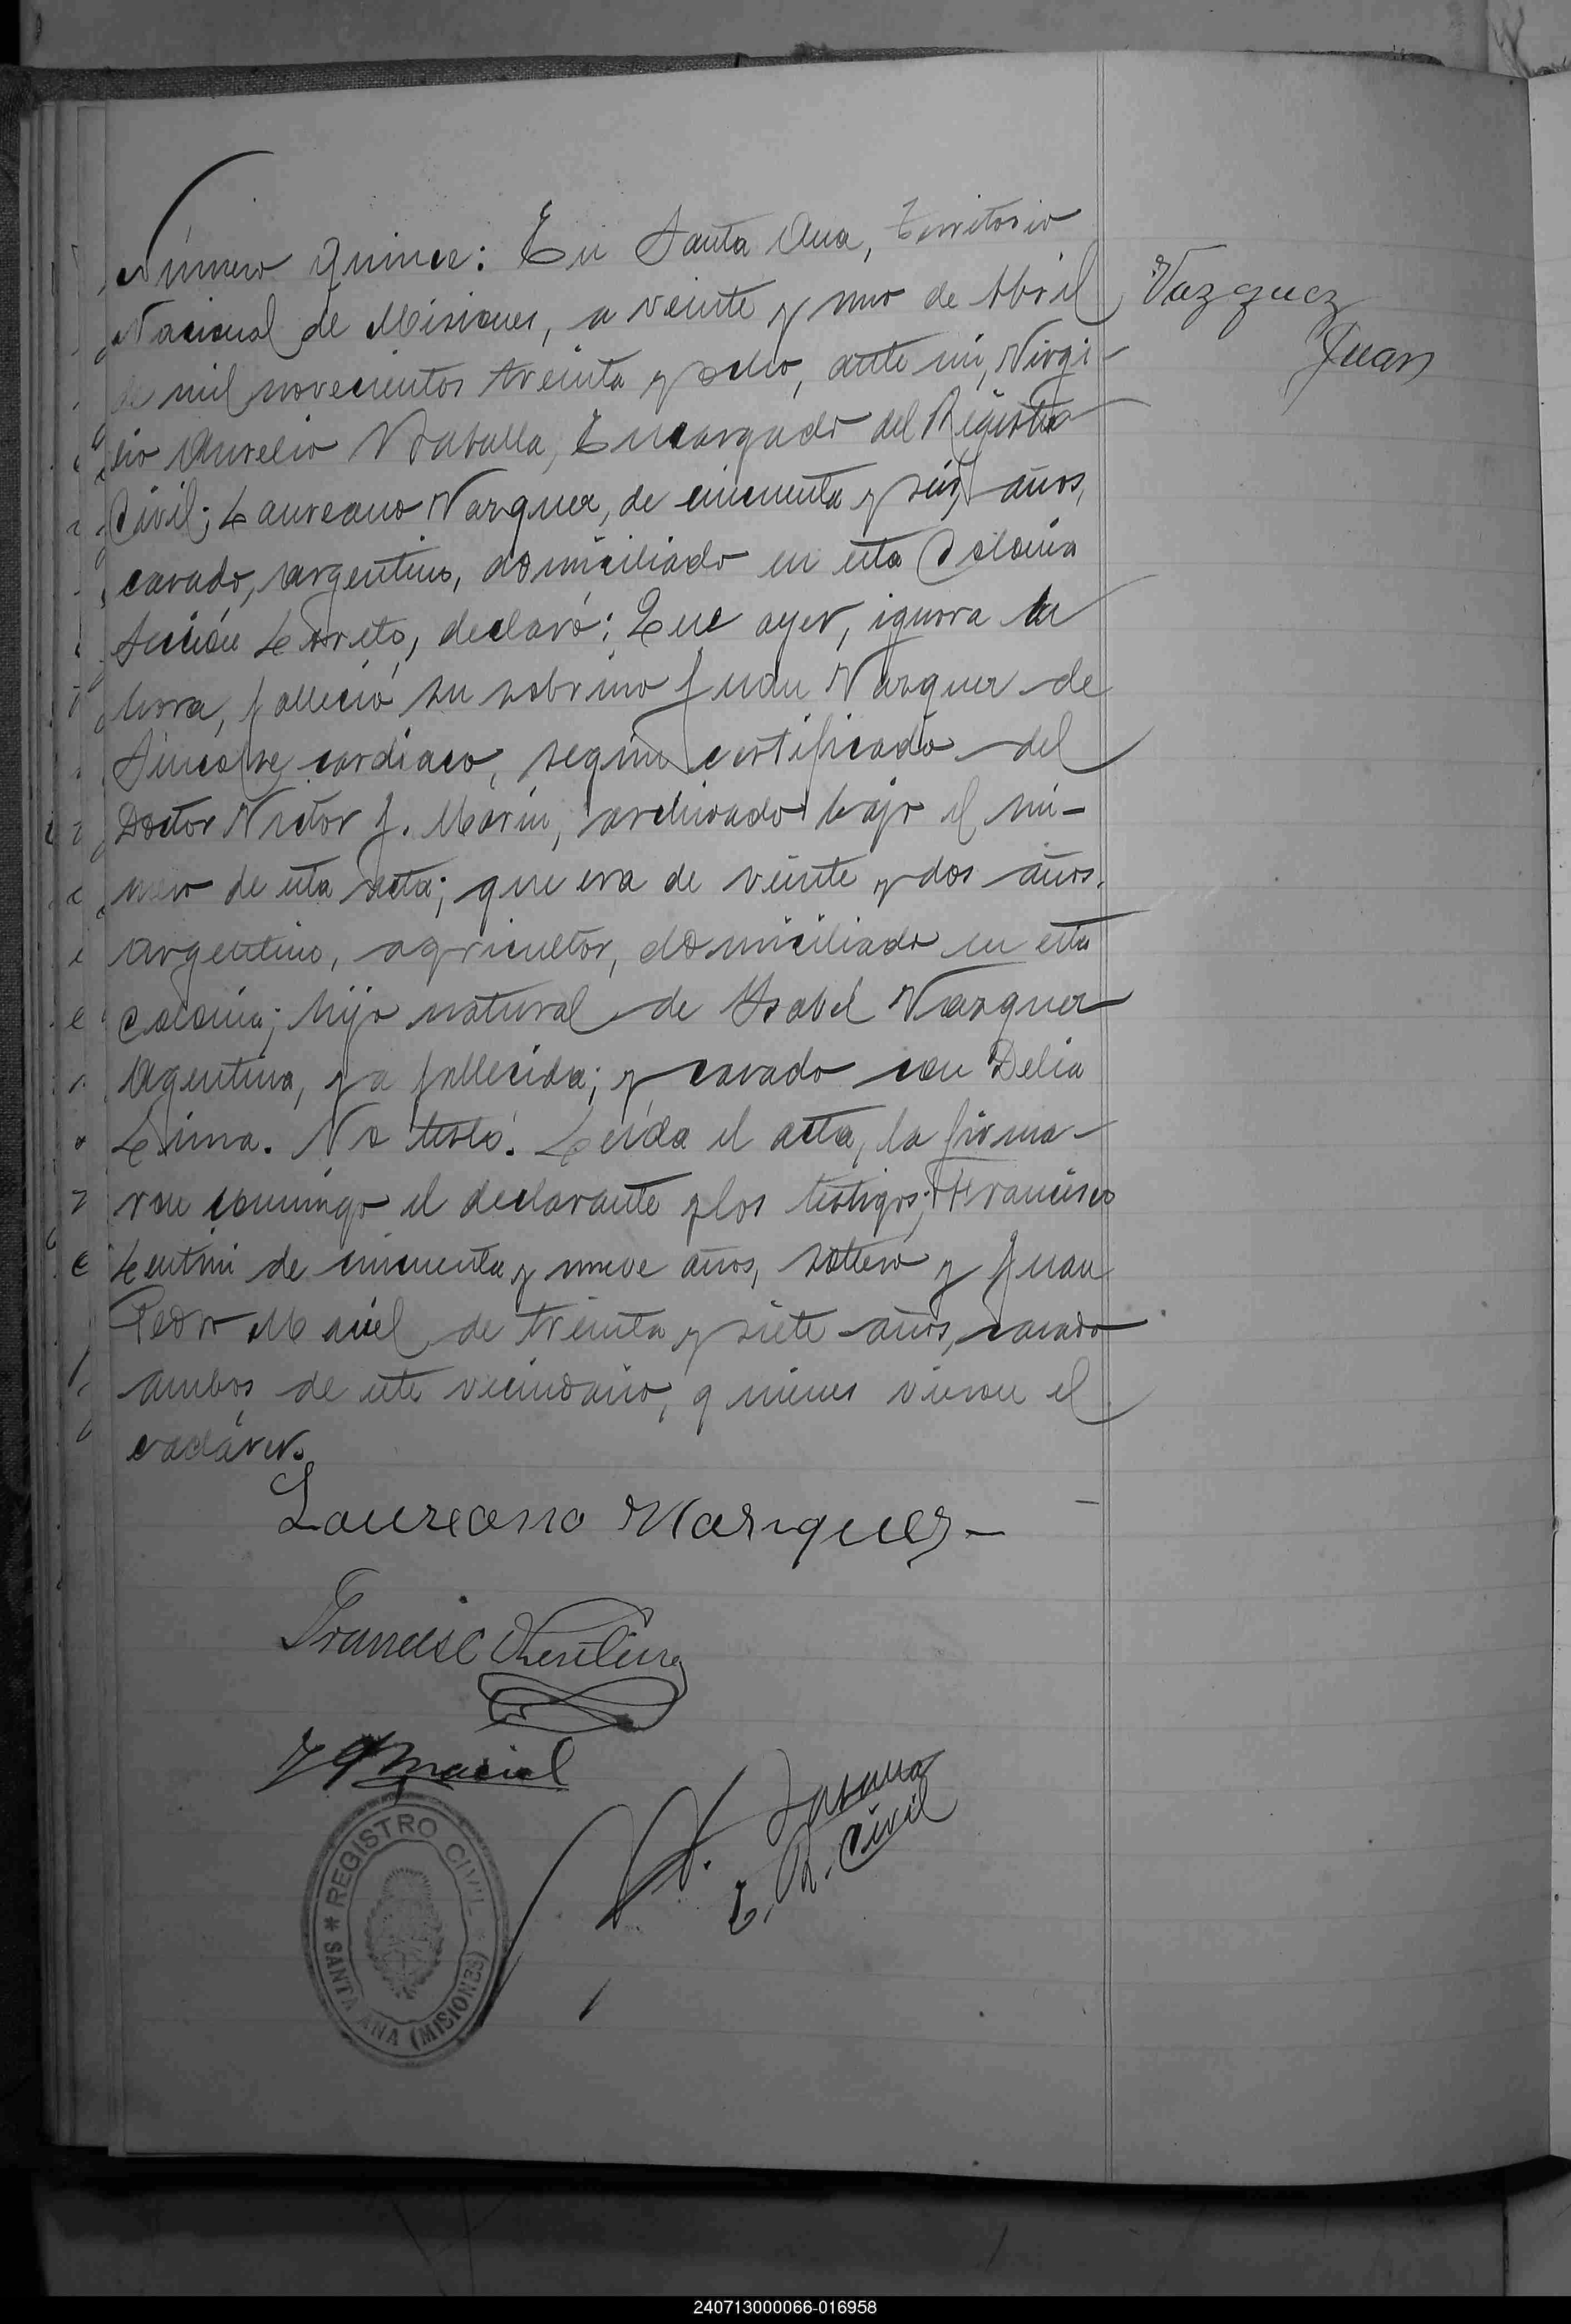 Número quince: En Santa Ana, Territorio
Nacional de Misiones, a veinte y uno de Abril
de mil novecientos treinta y ocho, ante mi, Virgi-
lio Aurelio Zaballa, Encargado del Registro
Civil; Laureano Vazquez, de cincuenta y seis años,
casado, argentino, domiciliado en esta Colonia
Sección Loreto, declaró: Que ayer, ignora la
hora, falleció su sobrino Juan Vazquez de
Síncope cardiaco, según certificado del
Doctor Victor J. Marin, archivado bajo el nú-
mero de esta acta; que era de veinte y dos años,
argentino, agricultor, domiciliado en esta
colonia; hijo natural de Isabel Vazquez
Agentina, ya fallecida; y casado con Delia
Lima. No testó. Leída el acta, la firma-
ron conmigo el declarante y los testigos; Francisco
Lentini de cincuenta y nueve años, soltero y Juan
Pedro Maciel de treinta y siete años, casado
ambos de este vecindario, quienes vieron el
cadáver.
Vazquez
Juan
Laureano Vazquez
Francisc Lentini
J P Maciel
V. Zaballa
E. R. Civil
* REGISTRO CIVIL *
SANTA ANA (MISIONES)
240713000066-016958